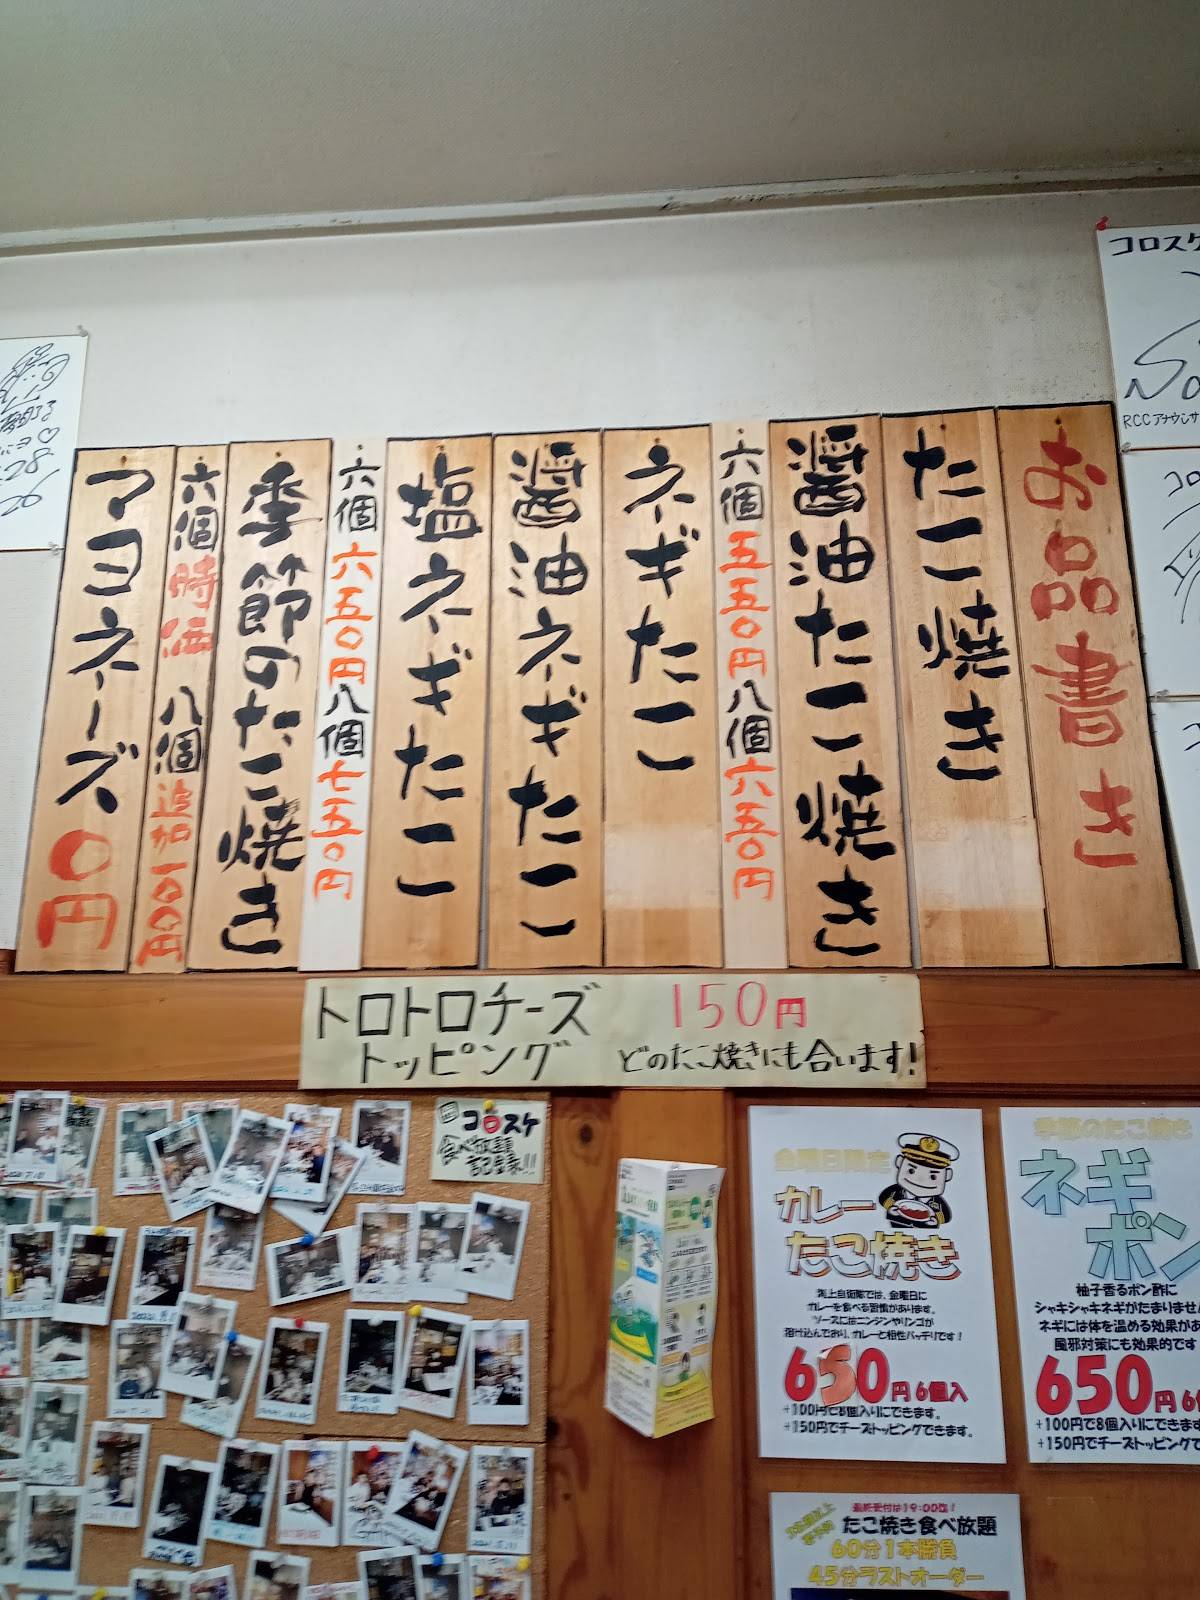 お品書き
たこ焼き
醤油たこ焼き
六個 五五〇円 八個 六五〇円
ネギたこ
醤油ネギたこ
塩ネギたこ
六個 六五〇円 八個 七五〇円
季節のたこ焼き
六個 時価 八個 追加一〇〇円
マヨネーズ 〇円
トロトロチーズ 150円
トッピング どのたこ焼きにも合います!
コロスケ
RCCアナウンサ
コロスケ
食べ放題
記録!!
金曜日限定
カレー
たこ焼き
海上自衛隊では、金曜日に
カレーを食べる習慣があります。
ソースにはニンジンやリンゴが
溶け込んでおり、カレーと相性バッチリです!
650円 6個入
+100円で8個入りにできます。
+150円でチーズトッピングできます。
季節のたこ焼き
ネギ
ポン
柚子香るポン酢に
シャキシャキネギがたまりません
ネギには体を温める効果があ
風邪対策にも効果的です
650円 6個
+100円で8個入りにできます
+150円でチーズトッピングで
最終受付は19:00迄!
たこ焼き食べ放題
60分1本勝負
45分ラストオーダー